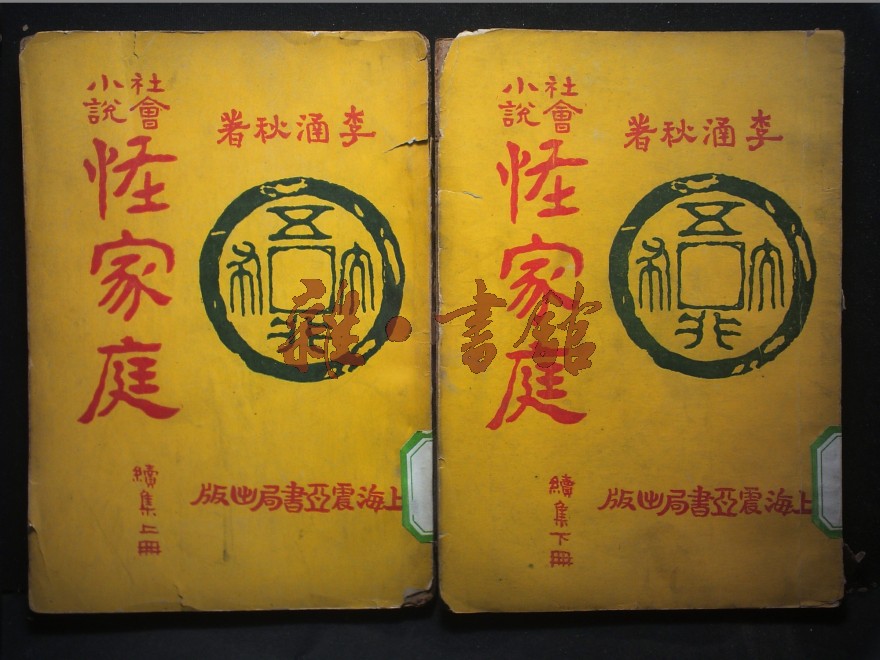 社會
小說
怪家庭
續集上冊
李涵秋著
五行大布
上海震亞書局出版
社會
小說
怪家庭
續集下冊
李涵秋著
五行大布
上海震亞書局出版
雜·書館